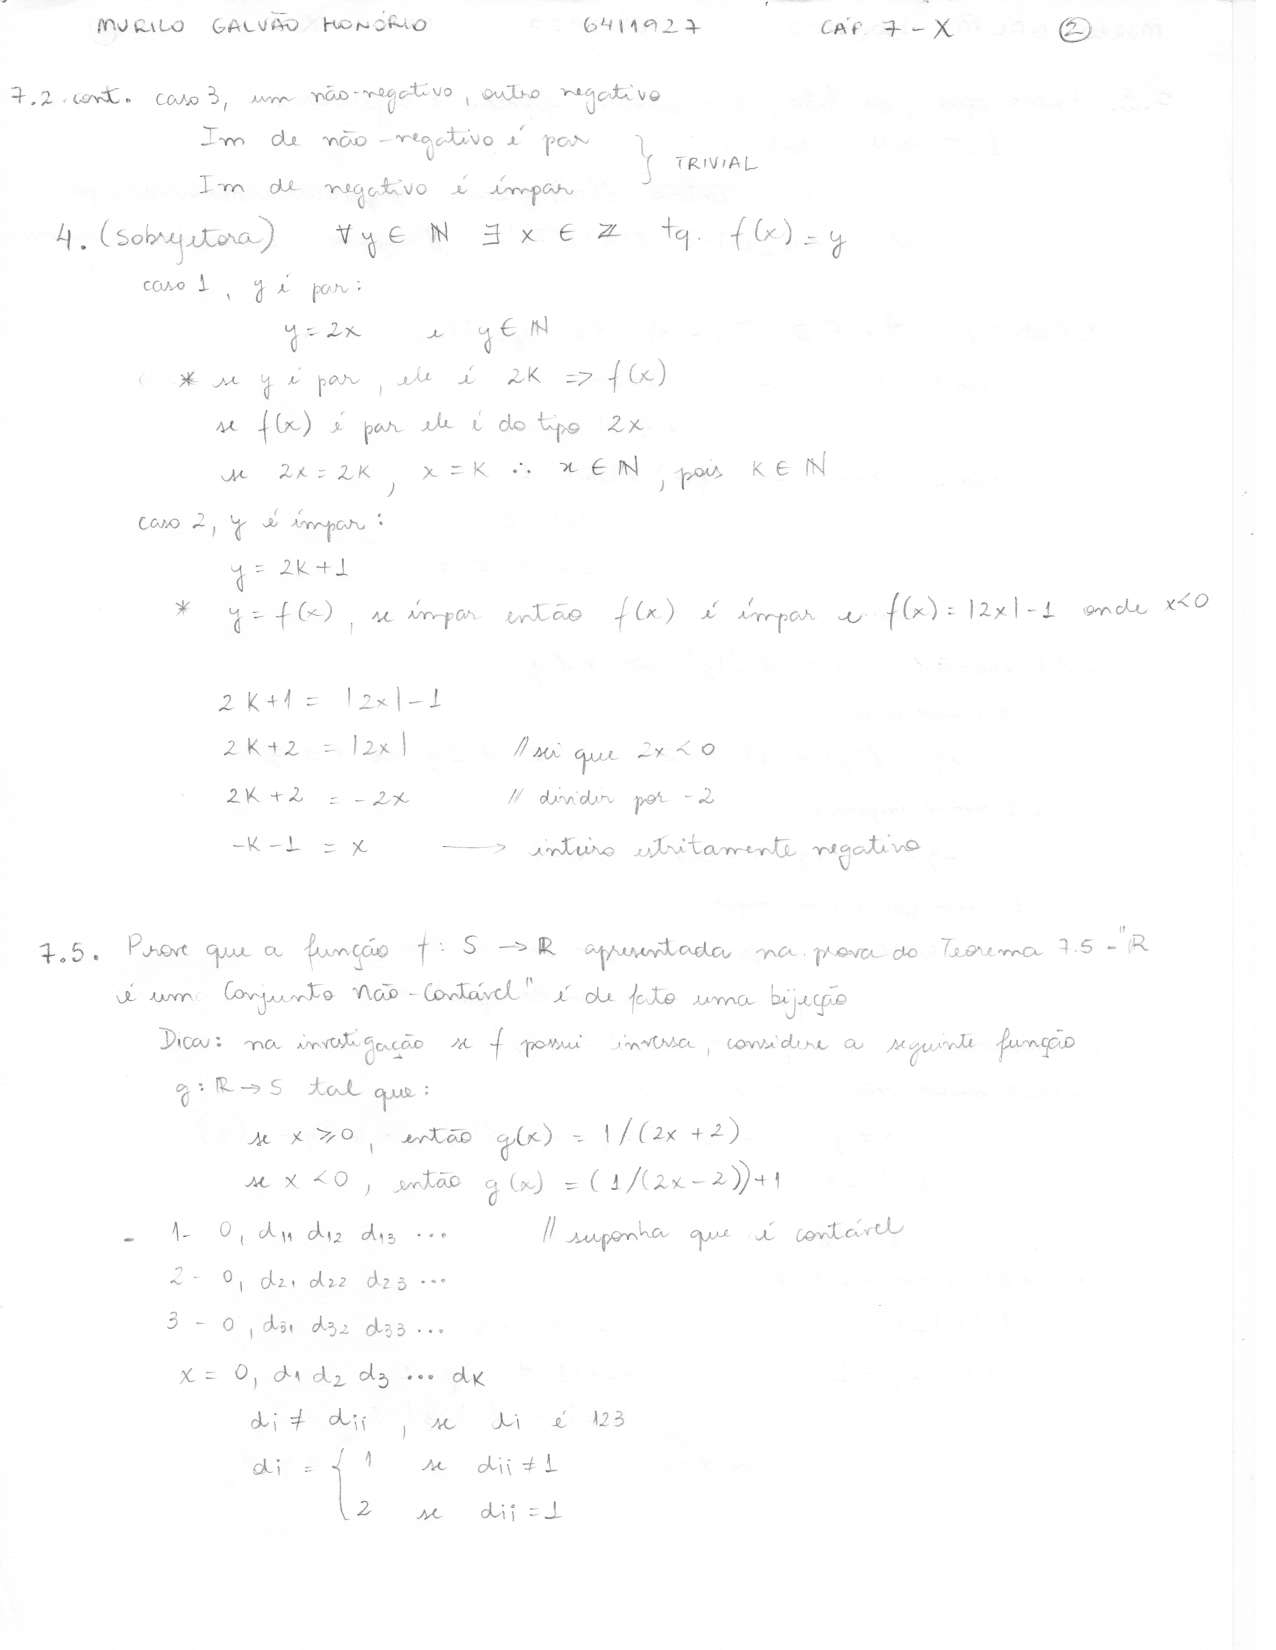 MURILO GALVÃO HONÓRIO 6411927 CAP. 7 - X 2
7.2. cont. caso 3, um não-negativo, outro negativo
Im de não-negativo é par
} TRIVIAL
Im de negativo é ímpar
4. (Sobrejetora) ∀ y ∈ ℕ ∃ x ∈ ℤ tq. f(x) = y
caso 1, y é par:
y = 2x e y ∈ ℕ
* se y é par, ele é 2K => f(x)
se f(x) é par ele é do tipo 2x
se 2x = 2K, x = K ∴ x ∈ ℕ, pois K ∈ ℕ
caso 2, y é ímpar:
y = 2K + 1
* y = f(x), se ímpar então f(x) é ímpar e f(x) = |2x| - 1 onde x < 0
2K + 1 = |2x| - 1
2K + 2 = |2x| // sei que 2x < 0
2K + 2 = -2x // dividir por -2
-K - 1 = x → inteiro estritamente negativo
7.5. Prove que a função f: S → ℝ apresentada na prova do Teorema 7.5 - "ℝ
é um Conjunto Não-Contável" é de fato uma bijeção
Dica: na investigação se f possui inversa, considere a seguinte função
g: ℝ → S tal que:
se x ⩾ 0, então g(x) = 1/(2x + 2)
se x < 0, então g(x) = (1/(2x - 2)) + 1
- 1- 0, d11 d12 d13 ... // suponha que é contável
2- 0, d21 d22 d23 ...
3 - 0, d31 d32 d33 ...
x = 0, d1 d2 d3 ... dK
di ≠ dii, se di é 123
di = { 1 se dii ≠ 1
2 se dii = 1